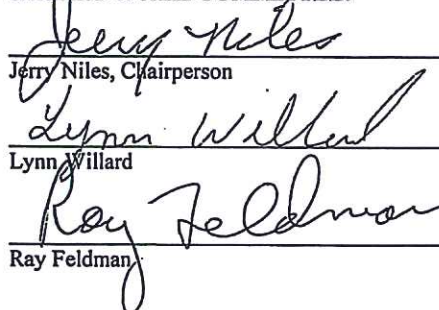 Jerry Niles
Jerry Niles, Chairperson
Lynn Willard
Lynn Willard
Ray Feldman
Ray Feldman